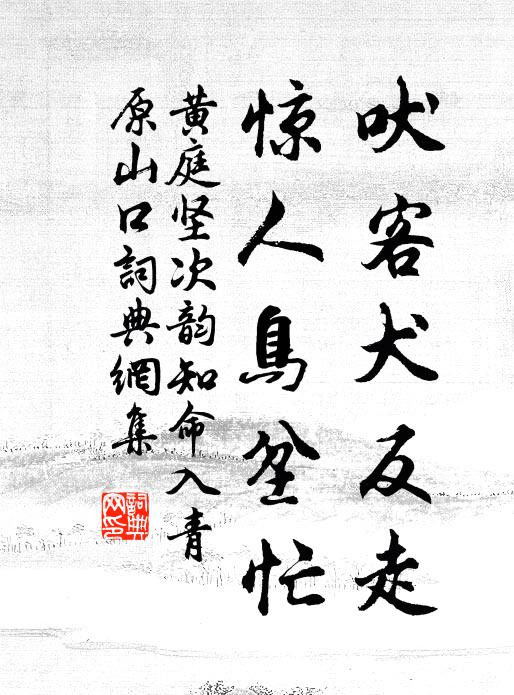 吠客犬反走
惊人鳥坌忙
黄庭坚次韵知命入青
原山口詞典網集
詞典
网印